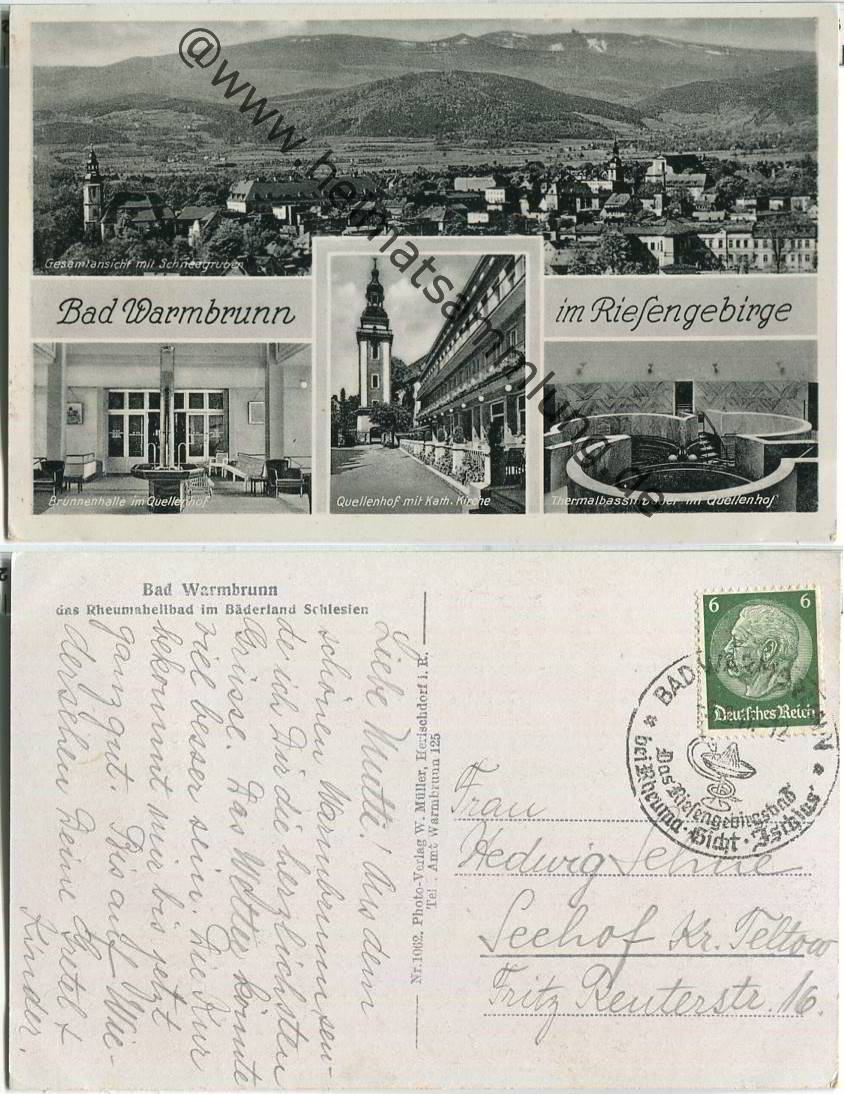 @www.heimatsammlung.de
Gesamtansicht mit Schneegruben
Bad Warmbrunn
im Riesengebirge
Brunnenhalle im Quellenhof
Quellenhof mit Kath. Kirche
Thermalbassinbäder im Quellenhof
Bad Warmbrunn
das Rheumaheilbad im Bäderland Schlesien
Liebe Mutti! Aus dem
schönen Warmbrunn sen-
de ich Dir die herzlichsten
Grüsse. Das Wetter könnte
viel besser sein. Die Kur
bekommt mir bis jetzt
ganz gut. Bis auf Wie-
dersehen Deine Gretel +
Kinder.
Nr. 1062. Photo-Verlag W. Müller, Herischdorf i. R.
Tel.: Amt Warmbrunn 125
6 6
Deutsches Reich
* BAD WARMBRUNN *
Das Riesengebirgsbad
bei Rheuma · Gicht · Ischias
Frau
Hedwig
Seehof Kr. Teltow
Fritz Reuterstr. 16.